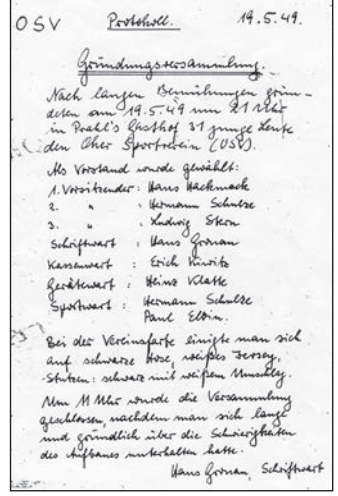 OSV Protokoll. 19.5.49.
Gründungsversammlung.
Nach langen Bemühungen grün-
deten am 19.5.49 um 21 Uhr
in Prahl's Gasthof 31 junge Leute
den Oher Sportverein (OSV).
Als Vorstand wurde gewählt:
1. Vorsitzender: Hans Hackmack
2. " : Hermann Schulze
3. " : Ludwig Stern
Schriftwart : Hans Gronau
Kassenwart : Erich
Gerätewart : Heinz Klatte
Sportwart : Hermann Schulze
Paul
Bei der Vereinsfarbe einigte man sich
auf schwarze Hose, weißes Jersey,
Stutzen: schwarz mit weißem Umschlag.
Um 11 Uhr wurde die Versammlung
geschlossen, nachdem man sich lange
und gründlich über die Schwierigkeiten
des Aufbaues unterhalten hatte.
Hans Gronau, Schriftwart